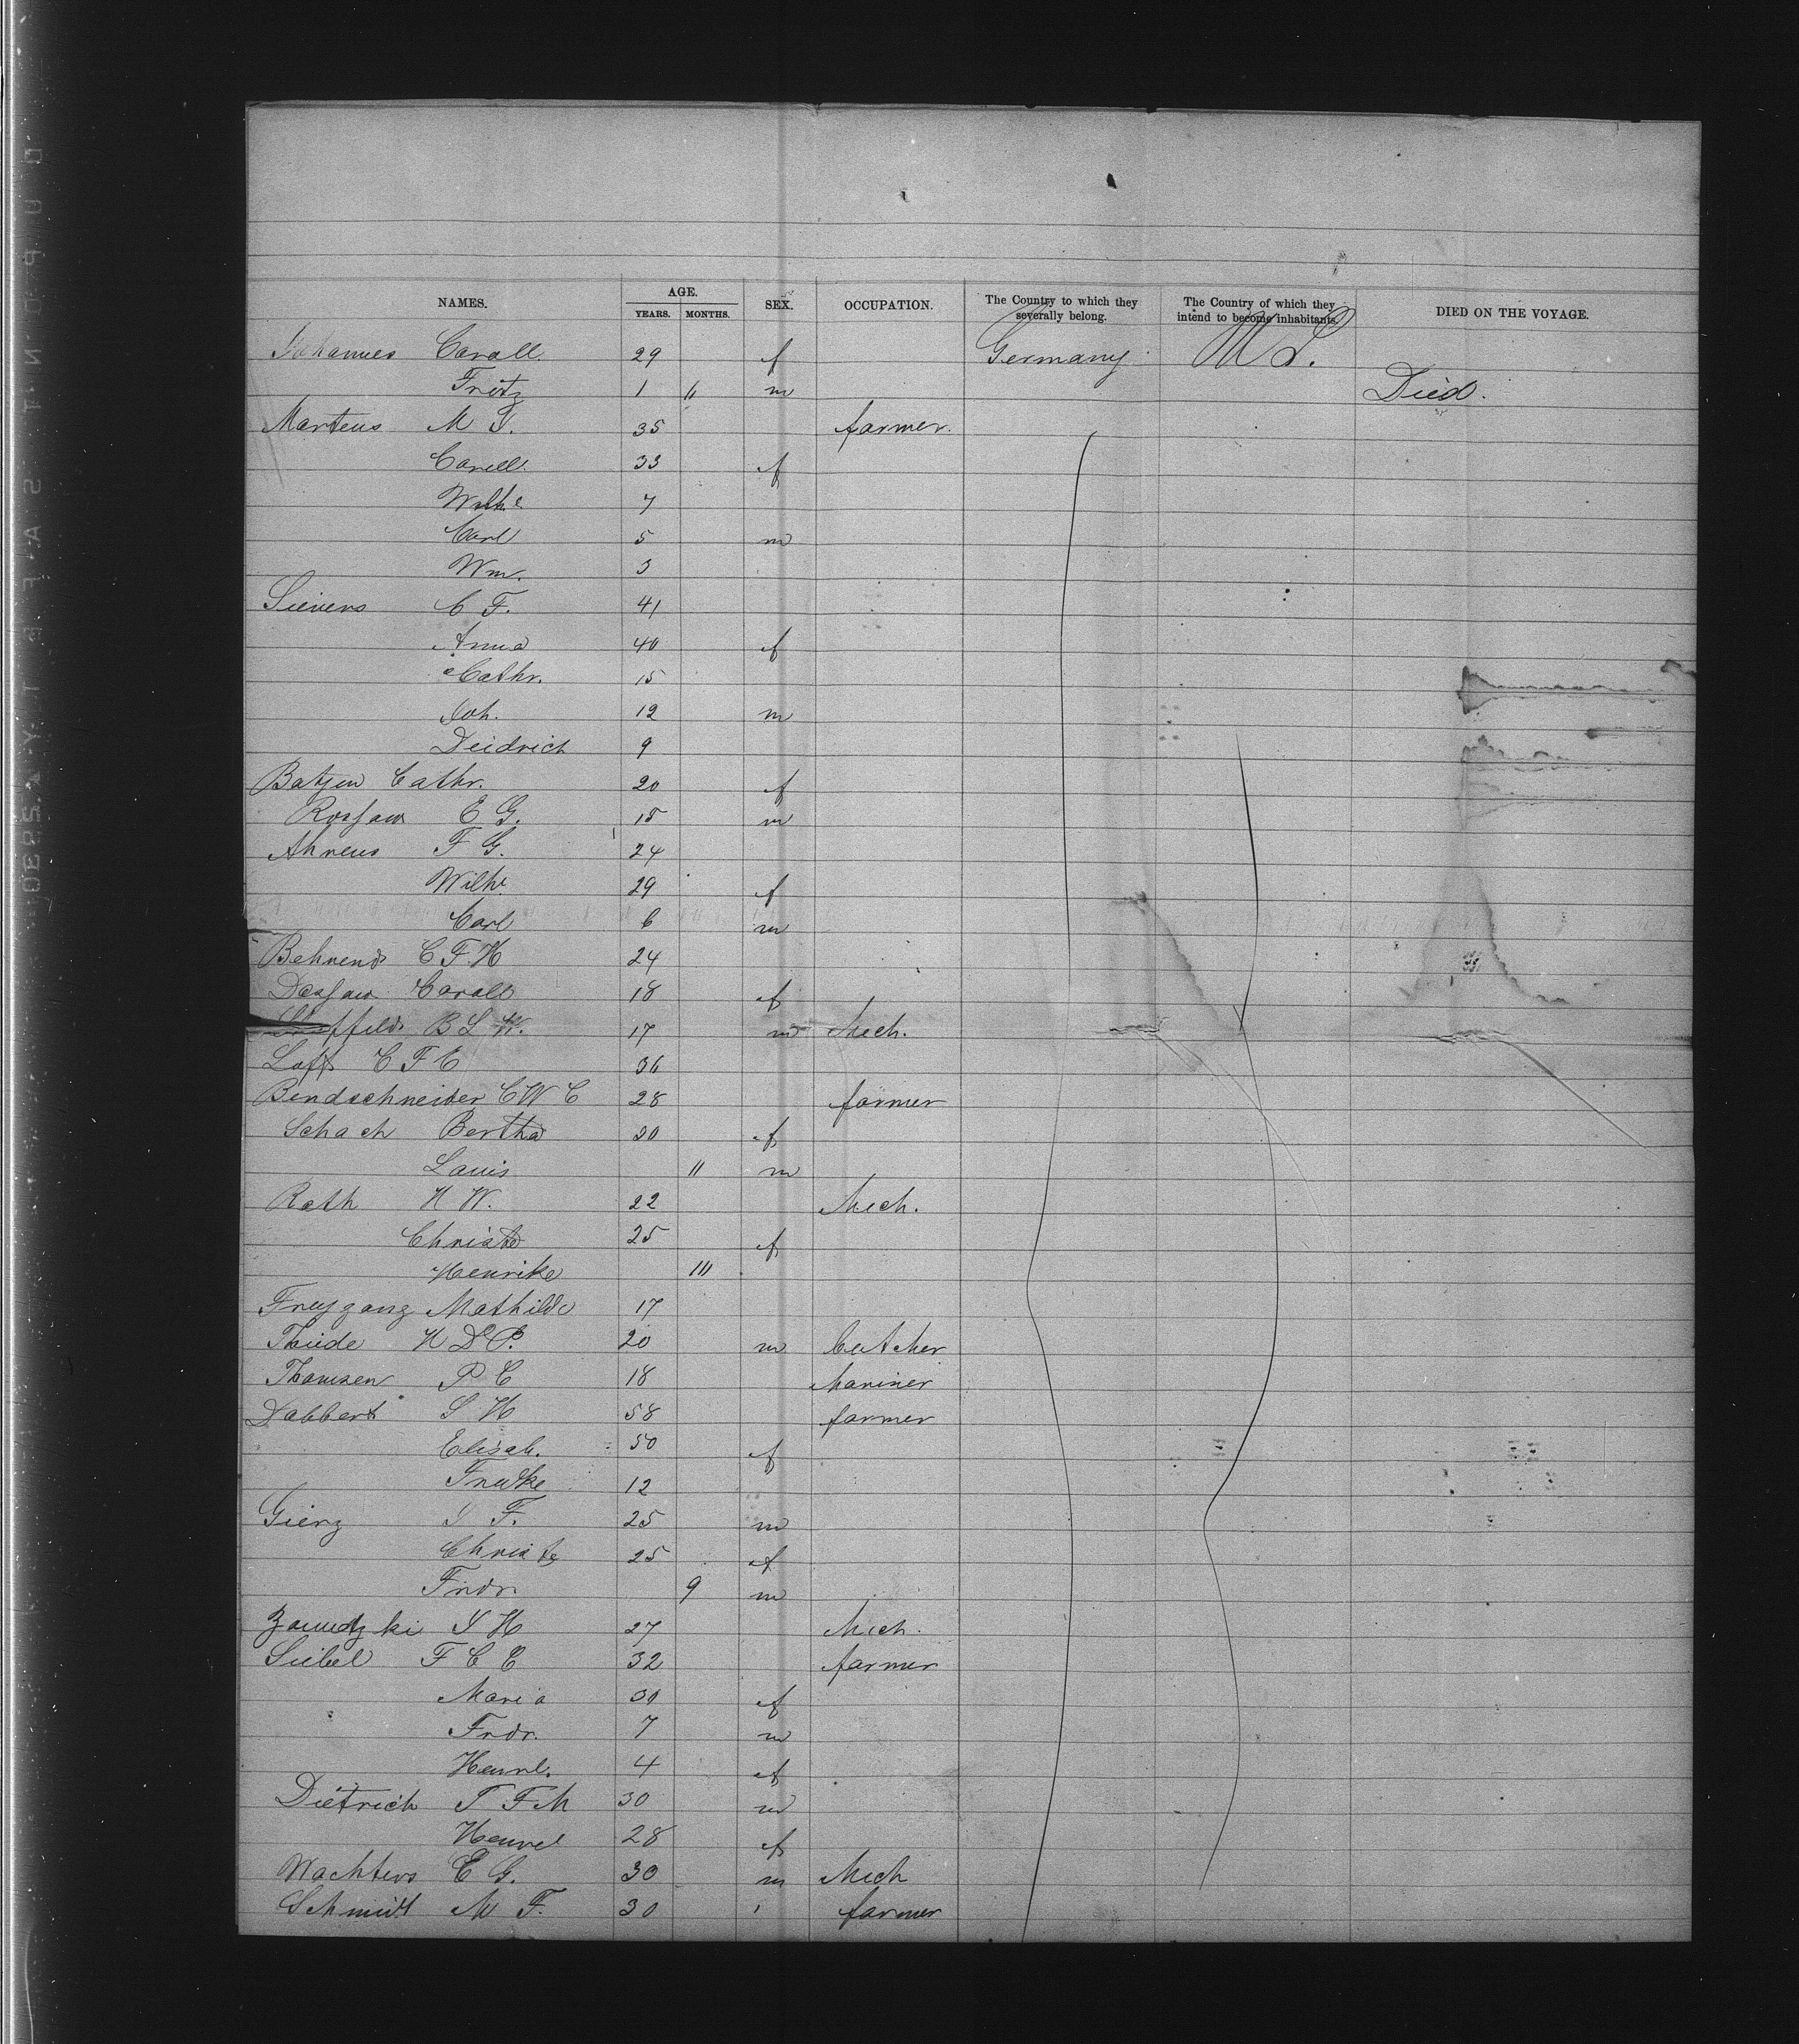 NAMES. AGE. SEX. OCCUPATION. The Country to which they severally belong. The Country of which they intend to become inhabitants. DIED ON THE VOYAGE.
YEARS. MONTHS.
Johannes Caroll 29 f Germany U S.
Fritz 1 11 m Died.
Martens M J. 35 farmer.
Caroll. 33 f
Wilhe 7
Carl 5 m
Wm. 3
Sievers C F. 41
Anna 40 f
Cathr. 15
Joh. 12 m
Deidrich 9
Batjen Cathr. 20 f
E G. 15 m
Ahrens F G. 24
Wilhe 29 f
Carl 6 m
Behrends C F. H 24
Caroll 18 f
B L W. 17 m Mech.
Loft C F E 36
Bendschneider C W C 28 farmer
Schach Bertha 20 f
Louis 11 m
Rath H W. 22 Mech.
Christe 25 f
Henrike 111
Freygang Mathilde 17
Thiede H D P. 20 m butcher
Thomsen P C 18 Mariner
Dabbert J H 58 farmer
Elisab. 50 f
12
Gierz J F. 25 m
Christe 25 f
Frdr. 9 m
J H 27 Mech.
Siebel F C E 32 farmer
Maria 30 f
Frdr. 7 m
Henrl. 4 f
Dietrich J F M 30 m
Henrel 28 f
Wachters E G. 30 m Mech
Schmidt M F. 30 ' farmer